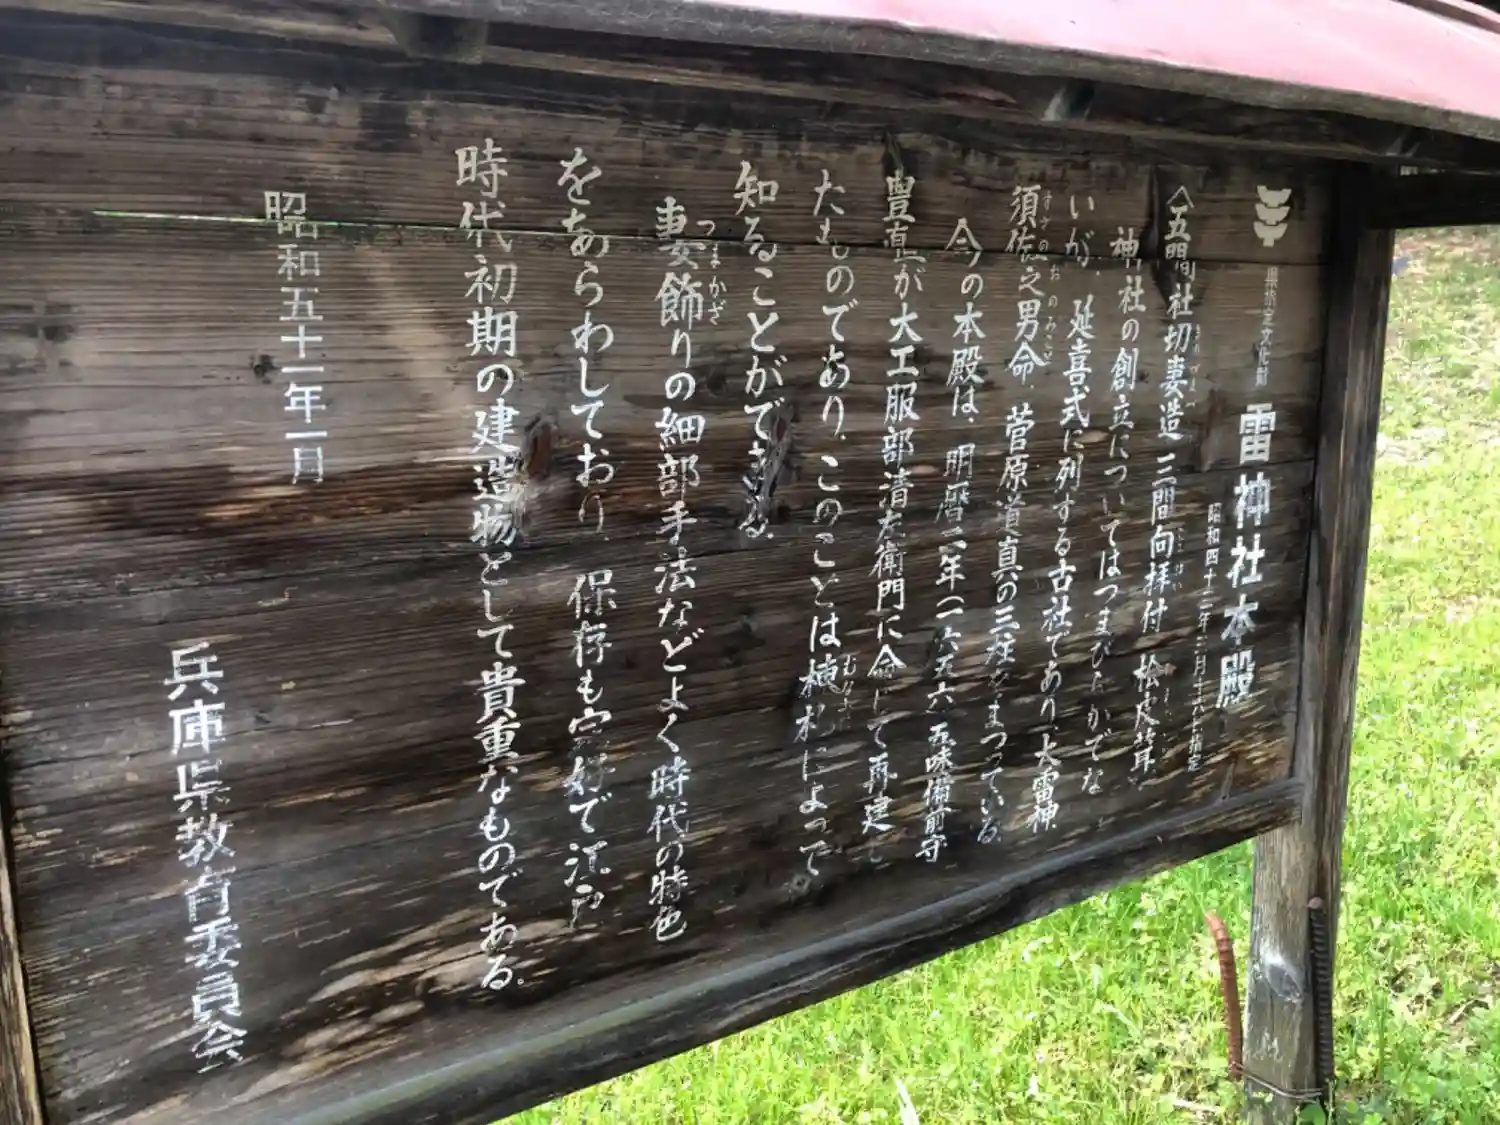 県指定文化財 雷神社本殿
昭和四十二年三月三十一日指定
〈五間社切妻造 三間向拝付 桧皮葺
神社の創立についてはつまびらかでな
いが、延喜式に列する古社であり、大雷神、
須佐之男命、菅原道真の三柱をまつっている。
今の本殿は、明暦二年(一六五六)五味備前守
豊直が大工服部清左衛門に命じて再建し
たものであり、このことは棟札によって
知ることができる。
妻飾りの細部手法などよく時代の特色
をあらわしており、保存も良好で江戸
時代初期の建造物として貴重なものである。
昭和五十一年一月
兵庫県教育委員会